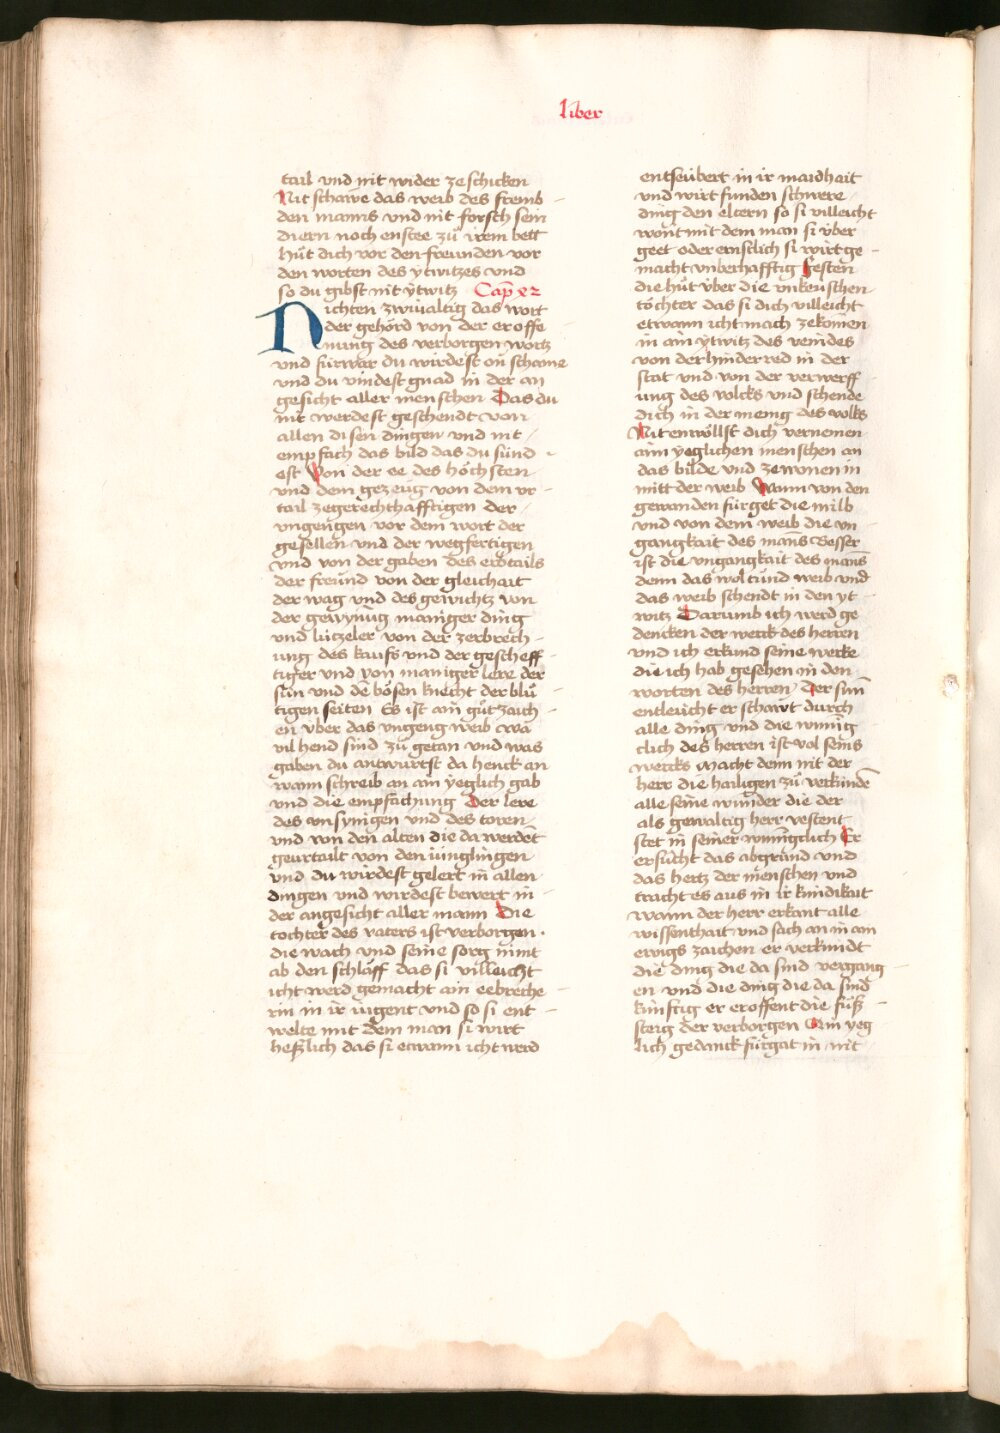 liber
tail vnd nit wider ze schicken
Nit schawe das weib des fremb
den manns vnd nit forsch sein
diern noch enstee zů irem bett
hüt dich vor den freunden vor
den worten des ytwitzes vnd
so du gibst nit ytwitz Cap xlij
Nichten zwiualtig das wort
der gehörd von der eroffe
nung des verborgen wortz
vnd fürwar du wirdest on schame
vnd du vindest gnad in der an
gesicht aller menschen Das du
nit werdest geschendt von
allen disen dingen vnd nit
empfach das bild das du sünd
est Von der ee des höchsten
vnd dem gezeüg von dem vr
tail zegerechthafftigen der
vngengen vor dem wort der
gesellen vnd der wegfertigen
vnd von der gaben des erbtails
der freünd von der gleichait
der wag vnd des gewichtz von
der gewynüg maniger ding
vnd lützeler von der zerbrech
ung des kaufs vnd der gescheff
tiger vnd von maniger lere der
sün vnd dē bösen knecht der blů
tigen seiten Es ist ain gůt zaich
en über das vngeng weib wa
vil hend sind zů getan vnd was
gaben du antwurtst da henck an
wann schreib an ain yeglich gab
vnd die empfachung Der lere
des vnsynigen vnd des toren
vnd von den alten die da werdet
geurtailt von den iünglingen
vnd du wirdest gelert in allen
dingen vnd wirdest bewert in
der angesicht aller mann Die
tochter des vaters ist verborgen
die wach vnd seine sorg nimt
ab den schlaff das si villeicht
icht werd gemacht ain eebreche
rin in ir iugent vnd so si ent
welte mit dem man si wirt
heßlich das si etwann icht werd
entseübert in ir maidhait
vnd wirt funden schwere
ding den eltern so si villeicht
wont mit dem man si über
geet oder ernstlich si wirt ge
macht vnberhafftig Festen
die hüt über die vnkeuschen
töchter das si dich villeicht
etwann icht mach zekomen
in ain ytwitz des veindes
von der hinderred in der
stat vnd von der verwerff
ung des volcks vnd schende
dich in der menig des volks
Nit enwöllst dich vernemen
aim yeglichen menschen an
das bilde vnd zewonen in
mitt der weib Wann von den
gewanden fürget die milb
vnd von dem weib die vn
gangkait des mans Besser
ist die vngangkait des mans
denn das wol tünd weib vnd
das weib schendt in den yt
witz Darumb ich werd ge
dencken der werck des herren
vnd ich erkund seine werke
die ich hab gesehen in den
worten des herren Der sun
entleücht er schawt durch
alle ding vnd die wunig
clich des herren ist vol seins
wercks Macht denn nit der
herr die hailigen zů verkünden
alle seine wunder die der
als gewaltig herr vestent
stet in seiner wunigclich Er
ersücht das abgründ vnd
das hertz der menschen vnd
tracht es aus in ir kündikait
wann der herr erkant alle
wissenthait vnd sach an in ain
ewigs zaichen er verkündt
die ding die da sind vergang
en vnd die ding die da sind
künftig er eroffent die füß
steig der verborgen Ain yeg
lich gedanck fürgat in nit